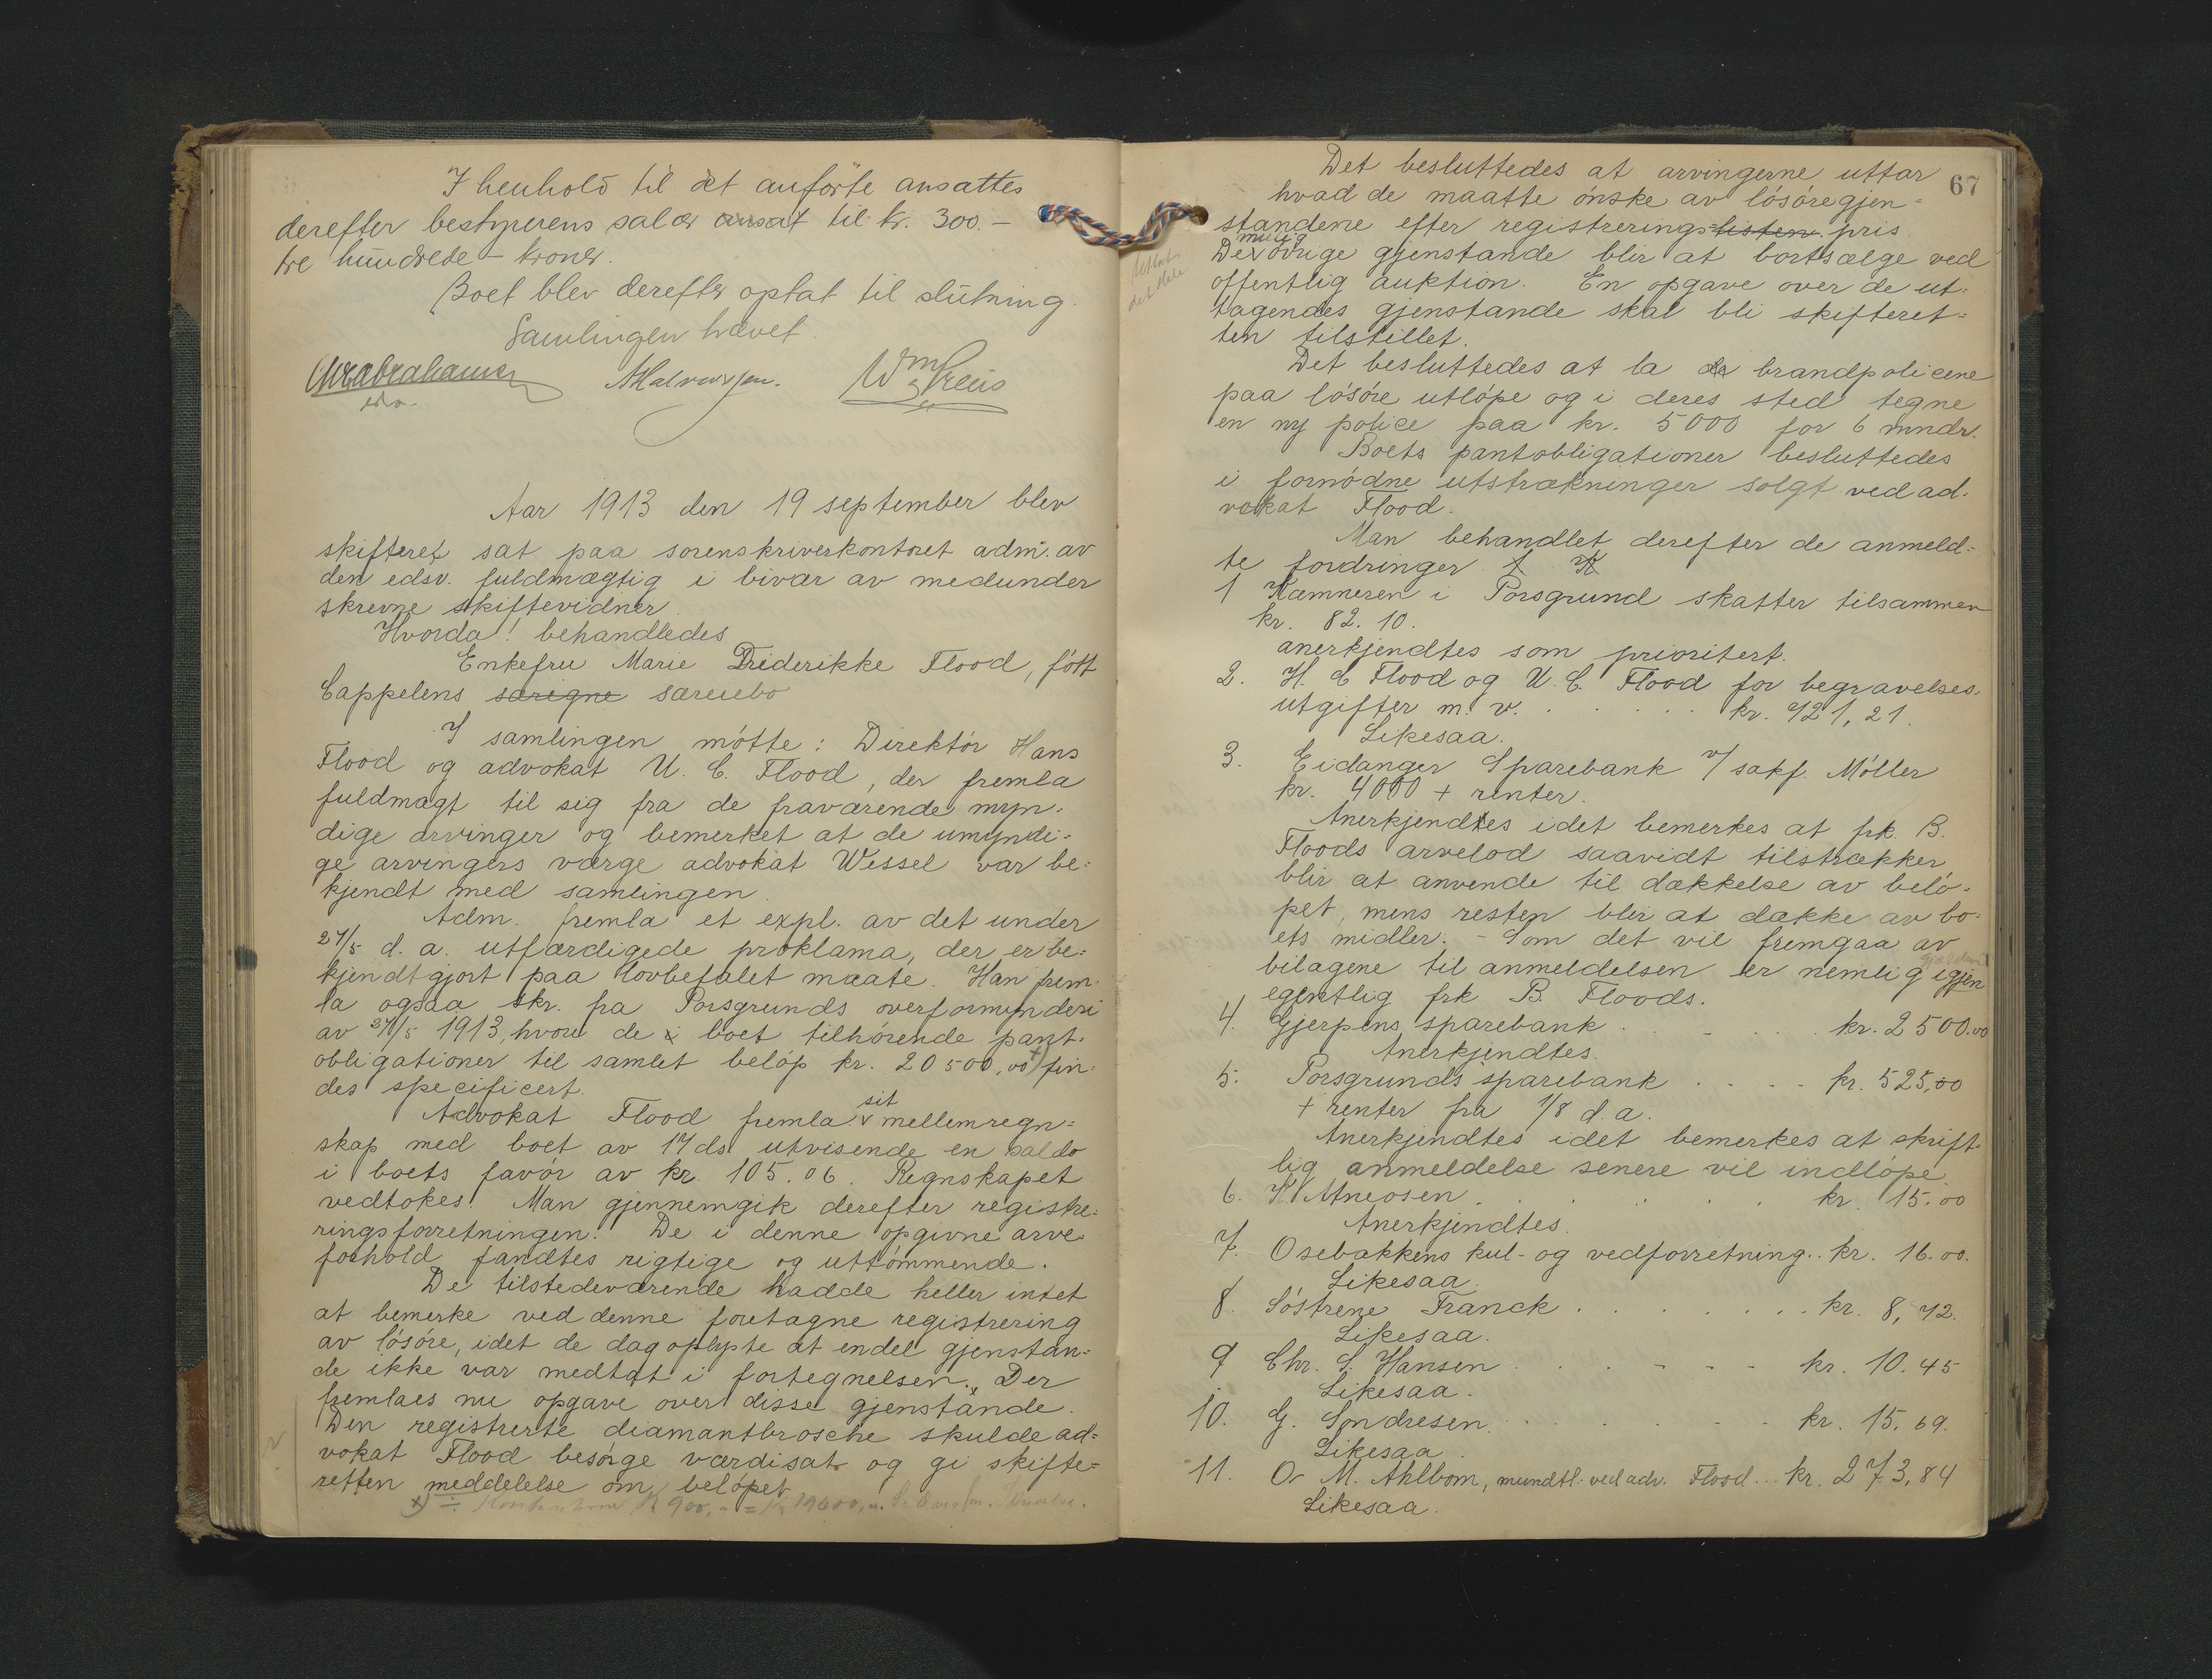 I henhold til det anførte ansattes
derefter bestyrerens salær ansat til kr. 300.-
tre hundrede - kroner.
Boet blev derefter optat til slutning.
Samlingen hævet.
Aar 1913 den 19 september blev
skifteret sat paa sorenskriverkontoret adm. av
den edsv. fuldmægtig i bivær av medunder
skrevne skiftevidner
Hvorda! behandledes
Enkefru Marie Friderikke Flood, født
Cappelens særigne særeiebo
I samlingen møtte: Direktør Hans
Flood og advokat U. C. Flood, der fremla
fuldmagt til sig fra de fraværende myn-
dige arvinger og bemerket at de umyndi-
ge arvingers værge advokat Wessel var be-
kjendt med samlingen
Adm. fremla et expl. av det under
27/5 d. a. utfærdigede proklama, der er be-
kjendtgjort paa lovbefalet maate. Han frem-
la ogsaa skr. fra Porsgrunds overformynderi
av 27/5 1913, hvori de i boet tilhørende pant-
obligationer til samlet beløp kr. 20500,00 x) fin-
des specificert.
Advokat Flood fremla sit mellemregn-
skap med boet av 17 ds utvisende en saldo
i boets favør av kr. 105.06. Regnskapet
vedtokes. Man gjennemgik derefter registre-
ringsforretningen. De i denne opgivne arve-
forhold fandtes rigtige og uttømmende.
De tilstedeværende hadde heller intet
at bemerke ved denne foretagne registrering
av løsøre, idet de dog oplyste at endel gjenstan-
de ikke var medtat i fortegnelsen. Der
fremlaes nu opgave over disse gjenstande.
Den registrerte diamantbrosche skulde ad-
vokat Flood besørge værdisat og gi skifte-
retten meddelelse om beløpet
67
Det besluttedes at arvingerne uttar
hvad de maatte ønske av løsøregjen-
standene efter registreringslisten pris
De mulig øvrige gjenstande blir at bortsælge ved
offentlig auktion. En opgave over de ut-
tagendes gjenstande skal bli skifteret-
ten tilstillet.
Det besluttedes at la de brandpolicene
paa løsøre utløpe og i deres sted tegne
en ny police paa kr. 5000 for 6 mndr.
Boets pantobligationer besluttedes
i fornødne utstrækninger solgt ved ad-
vokat Flood.
Man behandlet derefter de anmeld-
te fordringer. 1 K
1 Kæmneren i Porsgrund skatter tilsammen
kr. 82.10.
anerkjendtes som prioritert.
2. H. C Flood og U. C. Flood for begravelses-
utgifter m. v. . . . . . kr. 721,21.
Likesaa.
3. Eidanger Sparebank v/ sakf. Møller
kr. 4000 + renter.
Anerkjendtes idet bemerkes at frk. B.
Floods arvelod saavidt tilstrækker
blir at anvende til dækkelse av belø-
pet, mens resten blir at dække av bo-
ets midler. - Som det vil fremgaa av
bilagene til anmeldelsen er nemlig gjælden igjen
egentlig frk B. Floods.
4. Gjerpens sparebank . . . . kr. 2500.00
Anerkjendtes.
5. Porsgrunds sparebank . . . . kr. 525,00
+ renter fra 1/8 d. a.
Anerkjendtes idet bemerkes at skrift-
lig anmeldelse senere vil indløpe.
6. . . . . . kr. 15.00
Anerkjendtes.
7. Osebakkens kul- og vedforretning . . kr. 16.00.
Likesaa.
8. Søstrene Franck . . . . . . . kr. 8,72.
Likesaa.
9 Chr. S. Hansen . . . . . . kr. 10.45
Likesaa.
10. G. Sondresen . . . . . . kr. 15.69.
Likesaa
11. O. M. Ahlbom, mundtl. ved adv. Flood . . kr. 273,84
Likesaa.